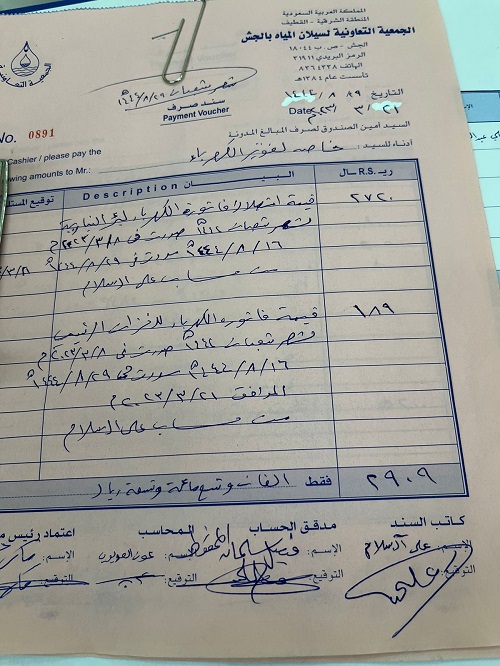 المملكة العربية السعودية
المنطقة الشرقية - القطيف
الجمعية التعاونية لسيلان المياه بالجش
الجش - ص.ب ١٨٠٤٤
الرمز البريدي ٣١٩١١
الهاتف ٨٣٦٤٣٣٨
تأسست عام ١٣٨٤هـ
شهر شعبان ١٤٤٤/٨/٢٩هـ
سند صرف
Payment Voucher
التاريخ ١٤٤٤/٨/٢٩
Date ٢٠٢٣/٣/٢١م
No. 0891
السيد أمين الصندوق لصرف المبالغ المدونة
Cashier / please pay the
أدناه للسيد: خاصه لفواتير الكهرباء
wing amounts to Mr.:
ريـ .R.S ـال
البـيـــان Description
توقيع المستلم
٢٧٢٠
قيمة استهلاك فاتورة الكهرباء لبئر
لشهر شعبان ١٤٤٤هـ صدرت في ٢٠٢٣/٣/٨م
١٤٤٤/٨/١٦هـ سددت في ١٤٤٤/٨/٢٩هـ
من حساب علي السلام
١٨٩
قيمة فاتورة الكهرباء للخزان الرئيسي
لشهر شعبان ١٤٤٤هـ صدرت في ٢٠٢٣/٣/٨م
١٤٤٤/٨/١٦هـ سددت في ١٤٤٤/٨/٢٩هـ
الموافق ٢٠٢٣/٣/٢١م
من حساب علي السلام
٢٩٠٩
فقط الفان وتسعمائة وتسعة ريال
كاتب السند
مدقق الحساب
المحاسب
اعتماد رئيس
الإسم: علي آل سلام
الإسم:
الإسم:
الإسم:
التوقيع:
التوقيع:
التوقيع:
التوقيع: